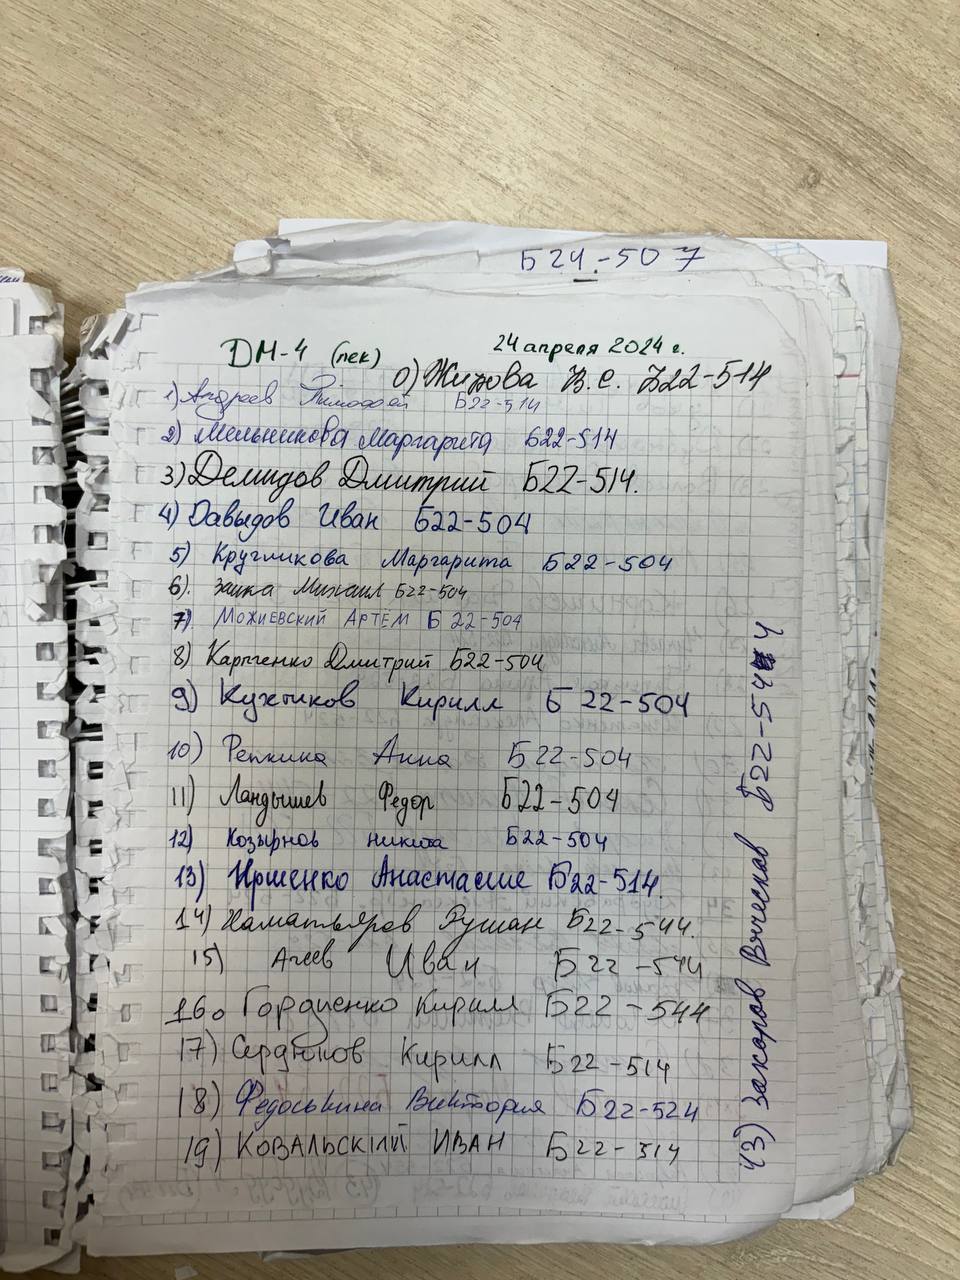 Б24-507
ДМ-4 (лек) 24 апреля 2024 г.
0) Жирова В.С. Б22-514
1) Андреев Тимофей Б22-514
2) Мельникова Маргарита Б22-514
3) Демидов Дмитрий Б22-514.
4) Давыдов Иван Б22-504
5) Кругликова Маргарита Б22-504
6). Заика Михаил Б22-504
7) Можиевский Артём Б 22-504
8) Карпенко Дмитрий Б22-504
9) Кухтиков Кирилл Б 22-504
10) Репкина Анна Б22-504
11) Ландышев Федор Б22-504
12) Козырнов Никита Б22-504
13) Яршенко Анастасие Б22-514.
14) Хаматьяров Рушан Б22-544.
15) Агеев Иван Б22-544
16. Гордиенко Кирилл Б22-544
17) Сердюков Кирилл Б22-514
18) Федоськина Виктория Б22-524
19) Ковальский Иван Б22-514
43) Захаров Вячеслав Б22-544